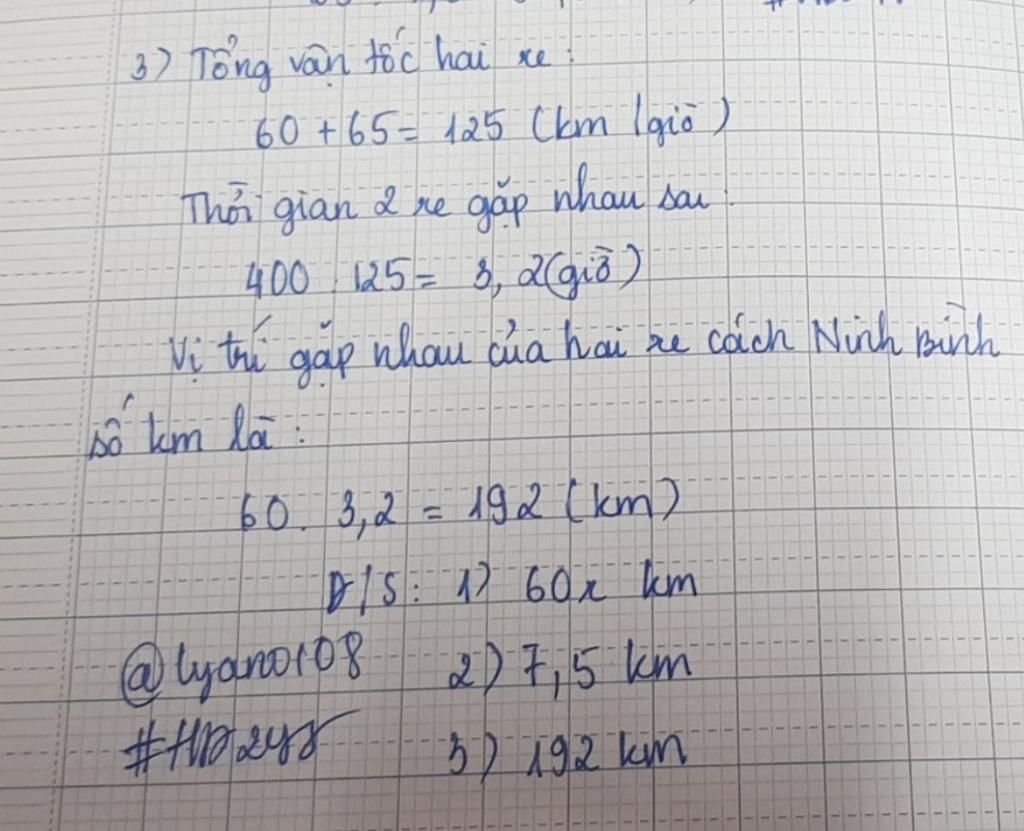 3) Tổng vận tốc hai xe :
60 + 65 = 125 (km/giờ)
Thời gian 2 xe gặp nhau sau :
400 : 125 = 3,2 (giờ)
Vị trí gặp nhau của hai xe cách Ninh Bình
số km là :
60 . 3,2 = 192 (km)
Đ/S : 1) 60x km
@lyano108 2) 7,5 km
3) 192 km